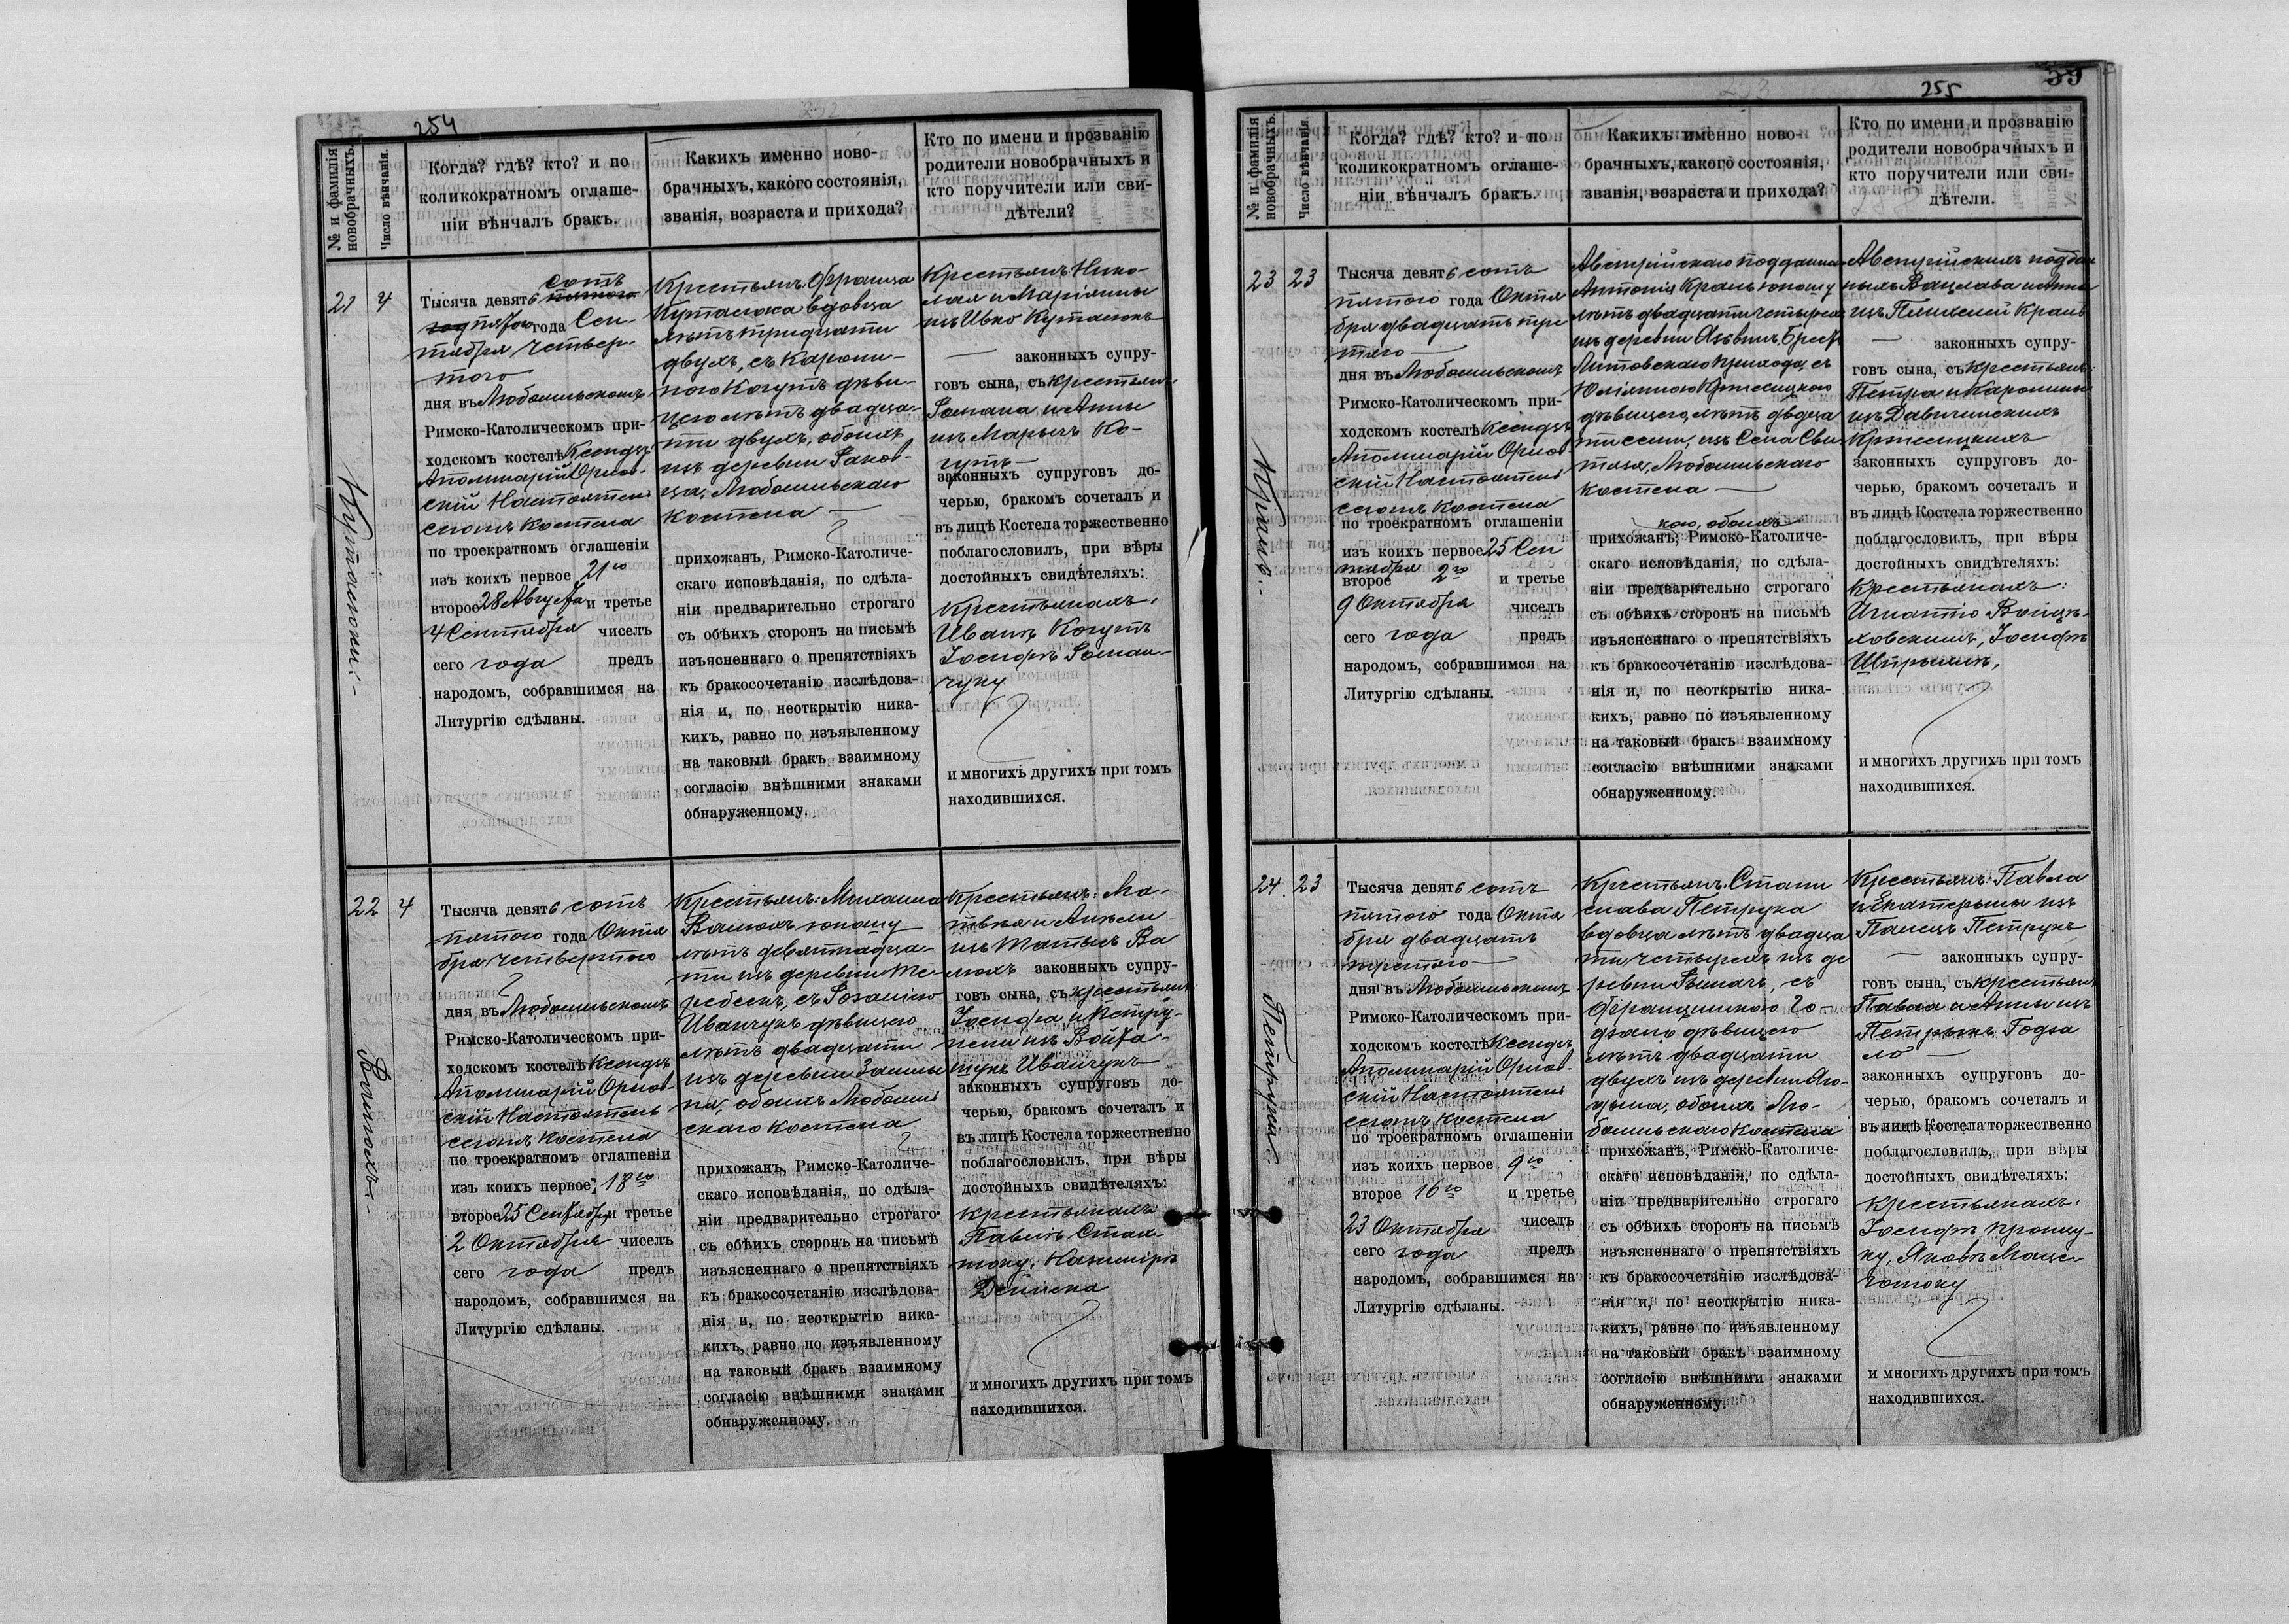 254
№ и фамилія новобрачныхъ.
Число вѣнчанія.
Когда? гдѣ? кто? и по
коликократномъ оглаше-
ніи вѣнчалъ бракъ.
Какихъ именно ново-
брачныхъ, какого состоянія,
званія, возраста и прихода?
Кто по имени и прозванію
родители новобрачныхъ и
кто поручители или сви-
дѣтели?
21
4
Тысяча девятьсотъ
пятого года Сен-
тября четвер-
того
дня въ Любомльскомъ
Римско-Католическомъ при-
ходскомъ костелѣ Ксендзъ
Аполинарій Орлов-
скій Настоятель
сего Костела
по троекратномъ оглашеніи
изъ коихъ первое 21го
второе 28 Августа и третье
4 Сентября чиселъ
сего года предъ
народомъ, собравшимся на
Литургію сдѣланы.
Крестьянъ: Франца
Кутасюка вдовца
лѣтъ тридцати
двухъ, съ Кароли-
ною Когутъ дѣви-
цею лѣтъ двадца-
ти двухъ, обоихъ
изъ деревни
Любомльскаго
Костела
прихожанъ, Римско-Католиче-
скаго исповѣданія, по сдѣла-
ніи предварительно строгаго
съ обѣихъ сторонъ на письмѣ
изъясненнаго о препятствіяхъ
къ бракосочетанію изслѣдова-
нія и, по неоткрытію ника-
кихъ, равно по изъявленному
на таковый бракъ взаимному
согласію внѣшними знаками
обнаруженному.
Крестьянъ Нико-
лая и Маріанны
изъ Ивко Кутасюкъ
законныхъ супру-
говъ сына, съ крестьян:
Романа и Анны
изъ Марычъ Ко-
гутъ
законныхъ супруговъ до-
черью, бракомъ сочеталъ и
въ лицѣ Костела торжественно
поблагословилъ, при вѣры
достойныхъ свидѣтеляхъ:
Крестьянахъ:
Иванъ Когутъ
Іосифъ Роман-
чуку
и многихъ другихъ при томъ
находившихся.
22
4
Тысяча девятьсотъ
пятого года Октя
бря четвертого
дня въ Любомльскомъ
Римско-Католическомъ при-
ходскомъ костелѣ Ксендзъ
Аполинарій Орлов-
скій Настоятель
сего Костела
по троекратномъ оглашеніи
изъ коихъ первое 18го
второе 25 Сентября и третье
2 Октября чиселъ
сего года предъ
народомъ, собравшимся на
Литургію сдѣланы.
Крестьянъ: Михаила
Валюхъ юношу
лѣтъ девятнадца-
ти изъ деревни Те-
ребенъ, съ Розалією
Иванчукъ дѣвицею
лѣтъ двадцати
изъ деревни
обоихъ Любомль
скаго Костела
прихожанъ, Римско-Католиче-
скаго исповѣданія, по сдѣла-
ніи предварительно строгаго
съ обѣихъ сторонъ на письмѣ
изъясненнаго о препятствіяхъ
къ бракосочетанію изслѣдова-
нія и, по неоткрытію ника-
кихъ, равно по изъявленному
на таковый бракъ взаимному
согласію внѣшними знаками
обнаруженному.
Крестьянъ: Ма-
твѣя и Анѣли
изъ Ва
люхъ законныхъ супру-
говъ сына, съ крестьян:
Іосифа и Петру-
нели изъ Войта-
щукъ Иванчукъ
законныхъ супруговъ до-
черью, бракомъ сочеталъ и
въ лицѣ Костела торжественно
поблагословилъ, при вѣры
достойныхъ свидѣтеляхъ:
крестьянахъ
Павелъ
Казиміръ
и многихъ другихъ при томъ
находившихся.
255
39
№ и фамилія новобрачныхъ.
Число вѣнчанія.
Когда? гдѣ? кто? и по
коликократномъ оглаше-
ніи вѣнчалъ бракъ.
Какихъ именно ново-
брачныхъ, какого состоянія,
званія, возраста и прихода?
Кто по имени и прозванію
родители новобрачныхъ и
кто поручители или сви-
дѣтели.
23
23
Краль
Тысяча девятьсотъ
пятого года Октя
бря двадцать тре
тяго
дня въ Любомльскомъ
Римско-Католическомъ при-
ходскомъ костелѣ Ксендзъ
Аполинарій Орлов
скій Настоятель
сего Костела
по троекратномъ оглашеніи
изъ коихъ первое 25 Сен
тября
второе 2го и третье
9 Октября чиселъ
сего года предъ
народомъ, собравшимся на
Литургію сдѣланы.
Австрійскаго подданна
Антонія Краль юношу
лѣтъ двадцати четырехъ
изъ деревни Брест
Литовскаго прихода, съ
Юліанною Кржесицкою
дѣвицею, лѣтъ двадца
ти семи, изъ Села Сви
тязя, Любомльскаго
Костела
кою, обоихъ
прихожанъ, Римско-Католиче-
скаго исповѣданія, по сдѣла-
ніи предварительно строгаго
съ обѣихъ сторонъ на письмѣ
изъясненнаго о препятствіяхъ
къ бракосочетанію изслѣдова-
нія и, по неоткрытію ника-
кихъ, равно по изъявленному
на таковый бракъ взаимному
согласію внѣшними знаками
обнаруженному.
Австрійскихъ поддан
ныхъ Вацлава и Анны
изъ Краль
законныхъ супру-
говъ сына, съ крестьян:
Петра и Каролины
изъ
Кржесицкихъ
законныхъ супруговъ до-
черью, бракомъ сочеталъ и
въ лицѣ Костела торжественно
поблагословилъ, при вѣры
достойныхъ свидѣтеляхъ:
Крестьянахъ:
Игнатію Войцѣ-
ховскимъ, Іосифъ
и многихъ другихъ при томъ
находившихся.
24
23
Петрукъ
Тысяча девятьсотъ
пятого года Октя
бря двадцать
третяго
дня въ Любомльскомъ
Римско-Католическомъ при-
ходскомъ костелѣ Ксендзъ
Аполинарій Орлов-
скій Настоятель
сего Костела
по троекратномъ оглашеніи
изъ коихъ первое 9го
второе 16го и третье
23 Октября чиселъ
сего года предъ
народомъ, собравшимся на
Литургію сдѣланы.
Крестьянъ: Стани
слава Петрука
вдовца лѣтъ двадца
ти четырехъ изъ де
ревни съ
Францишкою Го-
дзало дѣвицею
лѣтъ двадцати
двухъ изъ деревни
обоихъ Лю-
бомльскаго Костела
прихожанъ, Римско-Католиче-
скаго исповѣданія, по сдѣла-
ніи предварительно строгаго
съ обѣихъ сторонъ на письмѣ
изъясненнаго о препятствіяхъ
къ бракосочетанію изслѣдова-
нія и, по неоткрытію ника-
кихъ, равно по изъявленному
на таковый бракъ взаимному
согласію внѣшними знаками
обнаруженному.
Крестьянъ: Павла
и Екатерины изъ
Петрукъ
законныхъ супру-
говъ сына, съ крестьян
Павла и Анны изъ
Петрыкъ Годза
ло
законныхъ супруговъ до-
черью, бракомъ сочеталъ и
въ лицѣ Костела торжественно
поблагословилъ, при вѣры
достойныхъ свидѣтеляхъ:
крестьянахъ:
Іосифъ
Яковъ
и многихъ другихъ при томъ
находившихся.